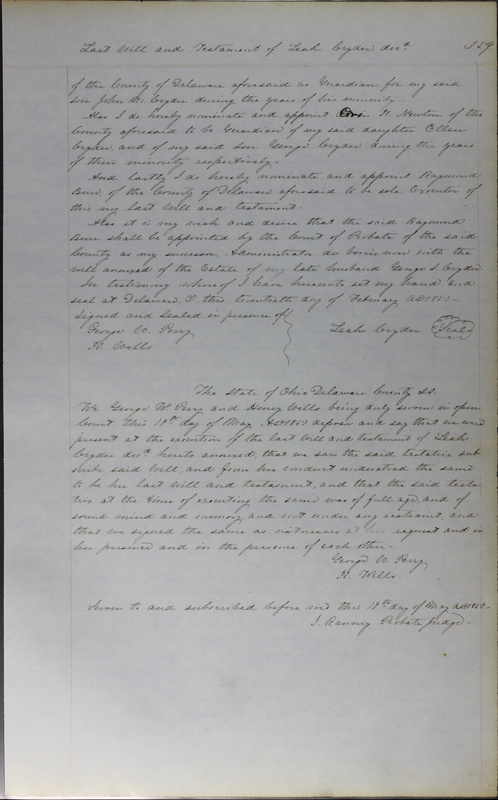 Last Will and Testament of Leah Cryder decd. 359
of the County of Delaware aforesaid as Guardian for my said
son John M. Cryder during the years of his minority.
Also I do hereby nominate and appoint H. Newton of the
County aforesaid to be Guardian of my said daughter Ellen
Cryder, and of my said son George Cryder during the years
of their minority respectively.
And lastly I do hereby nominate and appoint Raymond
Burr, of the County of Delaware aforesaid to be sole Executor of
this my last Will and testament.
Also it is my wish and desire that the said Raymond
Burr shall be appointed by the Court of Probate of the said
County as my successor, Administrator de bonis non with the
will annexed of the Estate of my late husband George S. Cryder.
In testimony whereof I have hereunto set my hand and
seal at Delaware O. this twentieth day of February AD
Signed and Sealed in presence of
George W. Perry Leah Cryder (Seal)
H. Wells
The State of Ohio Delaware County SS.
We George W. Perry and Henry Wells being duly sworn in open
Court this day of May depose and say that we were
present at the execution of the last Will and testament of Leah
Cryder decd. hereto annexed, that we saw the said testatrix sub-
scribe said Will, and from her conduct understood the same
to be her last will and testament, and that the said testa-
trix at the time of executing the same was of full age, and of
sound mind and memory, and not under any restraint, and
that we signed the same as witnesses at her request and in
her presence and in the presence of each other.
George W. Perry
H. Wells.
Sworn to and subscribed before me this day of May
Probate Judge.